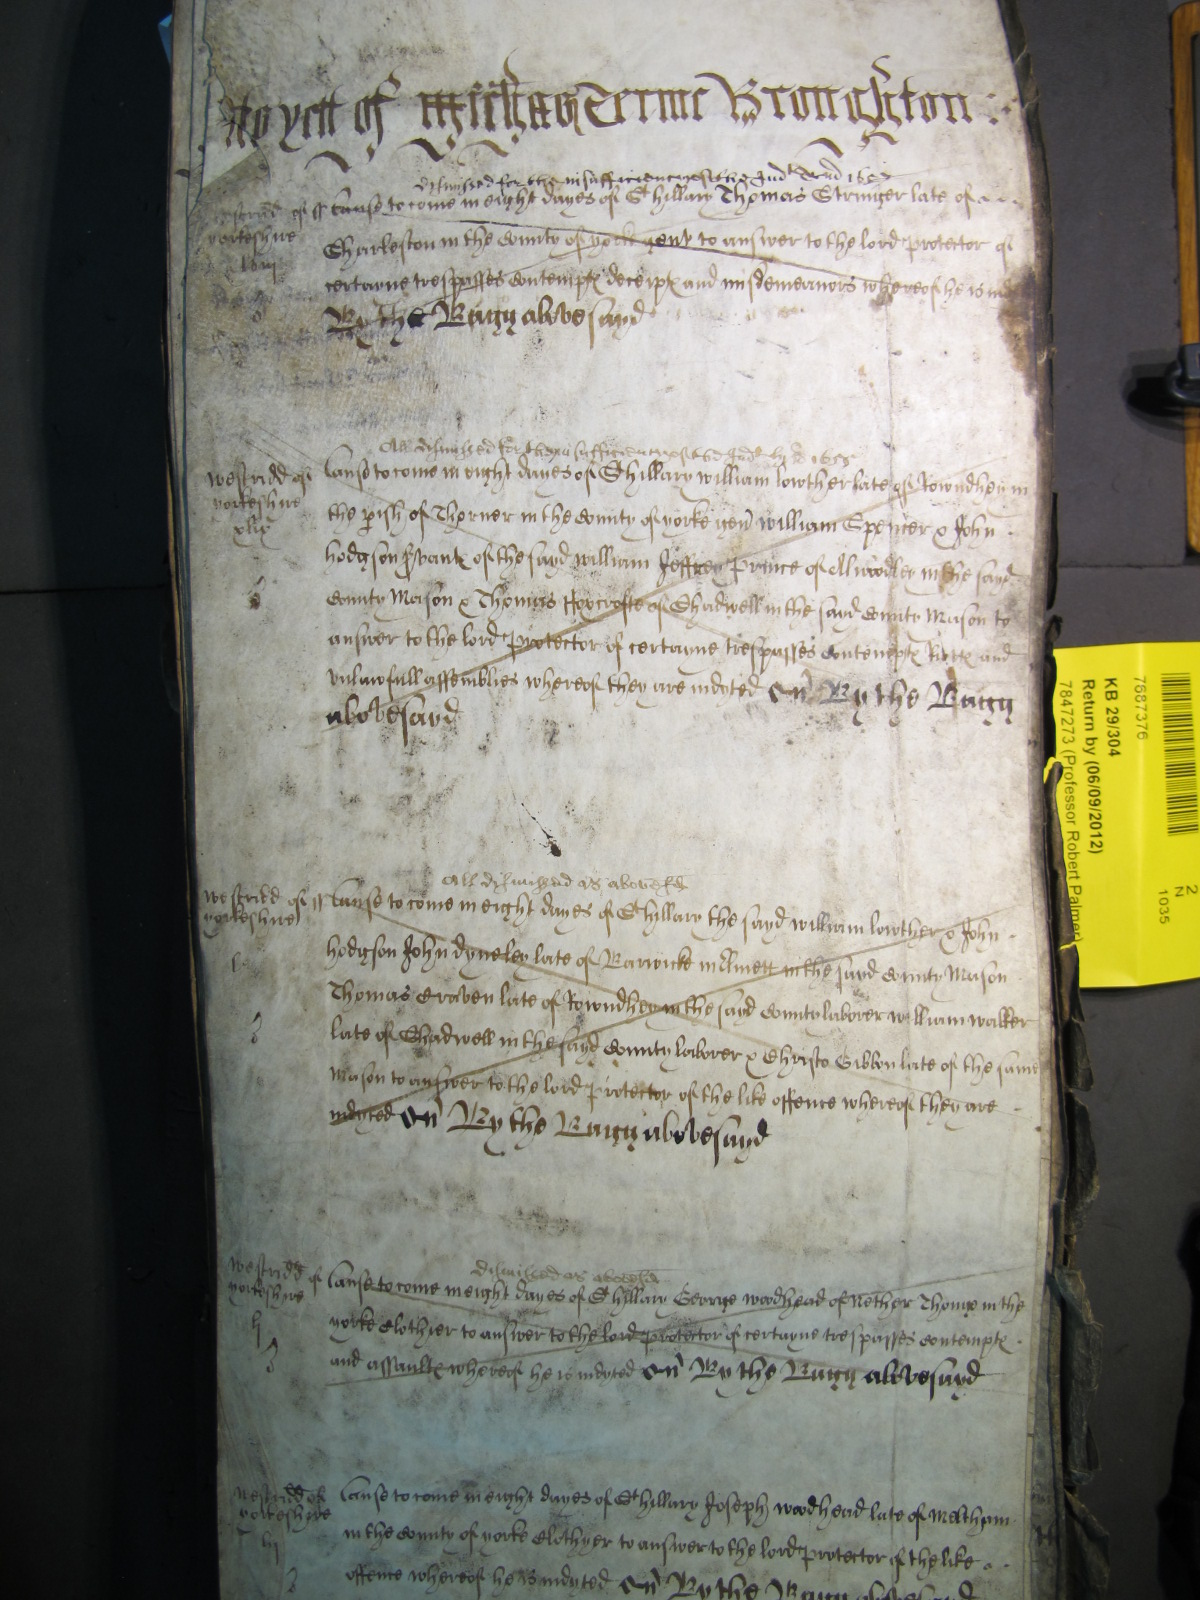 As yett of Michas Terme Broughton
dismissed for the insufficiency of the Ind
Westridd of yorkeshire
Cause to come in eight dayes of St hillary Thomas Stringer late of
Sharleston in the County of york gent to answer to the lord protector of
certayne trespasses Contemptx deceiptx and misdemeanors whereof he is
By the Bagg abovesayd
All dismissed for the insufficiency of the Ind 1655
Westridd of
yorkeshire
xlix
Cause to come in eight dayes of St hillary william lowther late of Rowndhey in
the pish of Thorner in the County of yorke gen william Spencer & John
hodgson svantx of the sayd william Jeffrey Prince of Allwoodley in the sayd
County Mason & Thomas of Shadwell in the sayd County Mason to
answer to the lord Protector of certayne trespasses Contemptx Riotx and
vnlawfull assemblies whereof they are indyted By the Bagg
abovesayd
All dismissed as abovesd
Westridd of
yorkeshire
l
Cause to come in eight dayes of St hillary the sayd william lowther & John
hodgson John dyneley late of Barwicke in Elmett in the sayd County Mason
Thomas Craven late of Rowndhey in the sayd County laborer william walker
late of Shadwell in the sayd County laborer & Christo Gibbon late of the same
Mason to answer to the lord Protector of the like offence whereof they are
indyted By the Bagg abovesayd
dismissed as abovesd
Westridd of
yorkeshire
lj
Cause to come in eight dayes of St hillary George woodhead of Nether Thonge in the
yorke Clothier to answer to the lord protector of certayne trespasses Contemptx
and assaultx whereof he is indyted By the Bagg abovesayd
Westridd of
yorkeshire
lij
Cause to come in eight dayes of St hillary Joseph woodhead late of Meltham
in the County of yorke Clothyer to answer to the lord protector of the like
offence whereof he is indyted By the Bagg abovesayd
7687376
KB 29/304
Return by (06/09/2012)
7847273 (Professor Robert Palmer)
2
N
1035